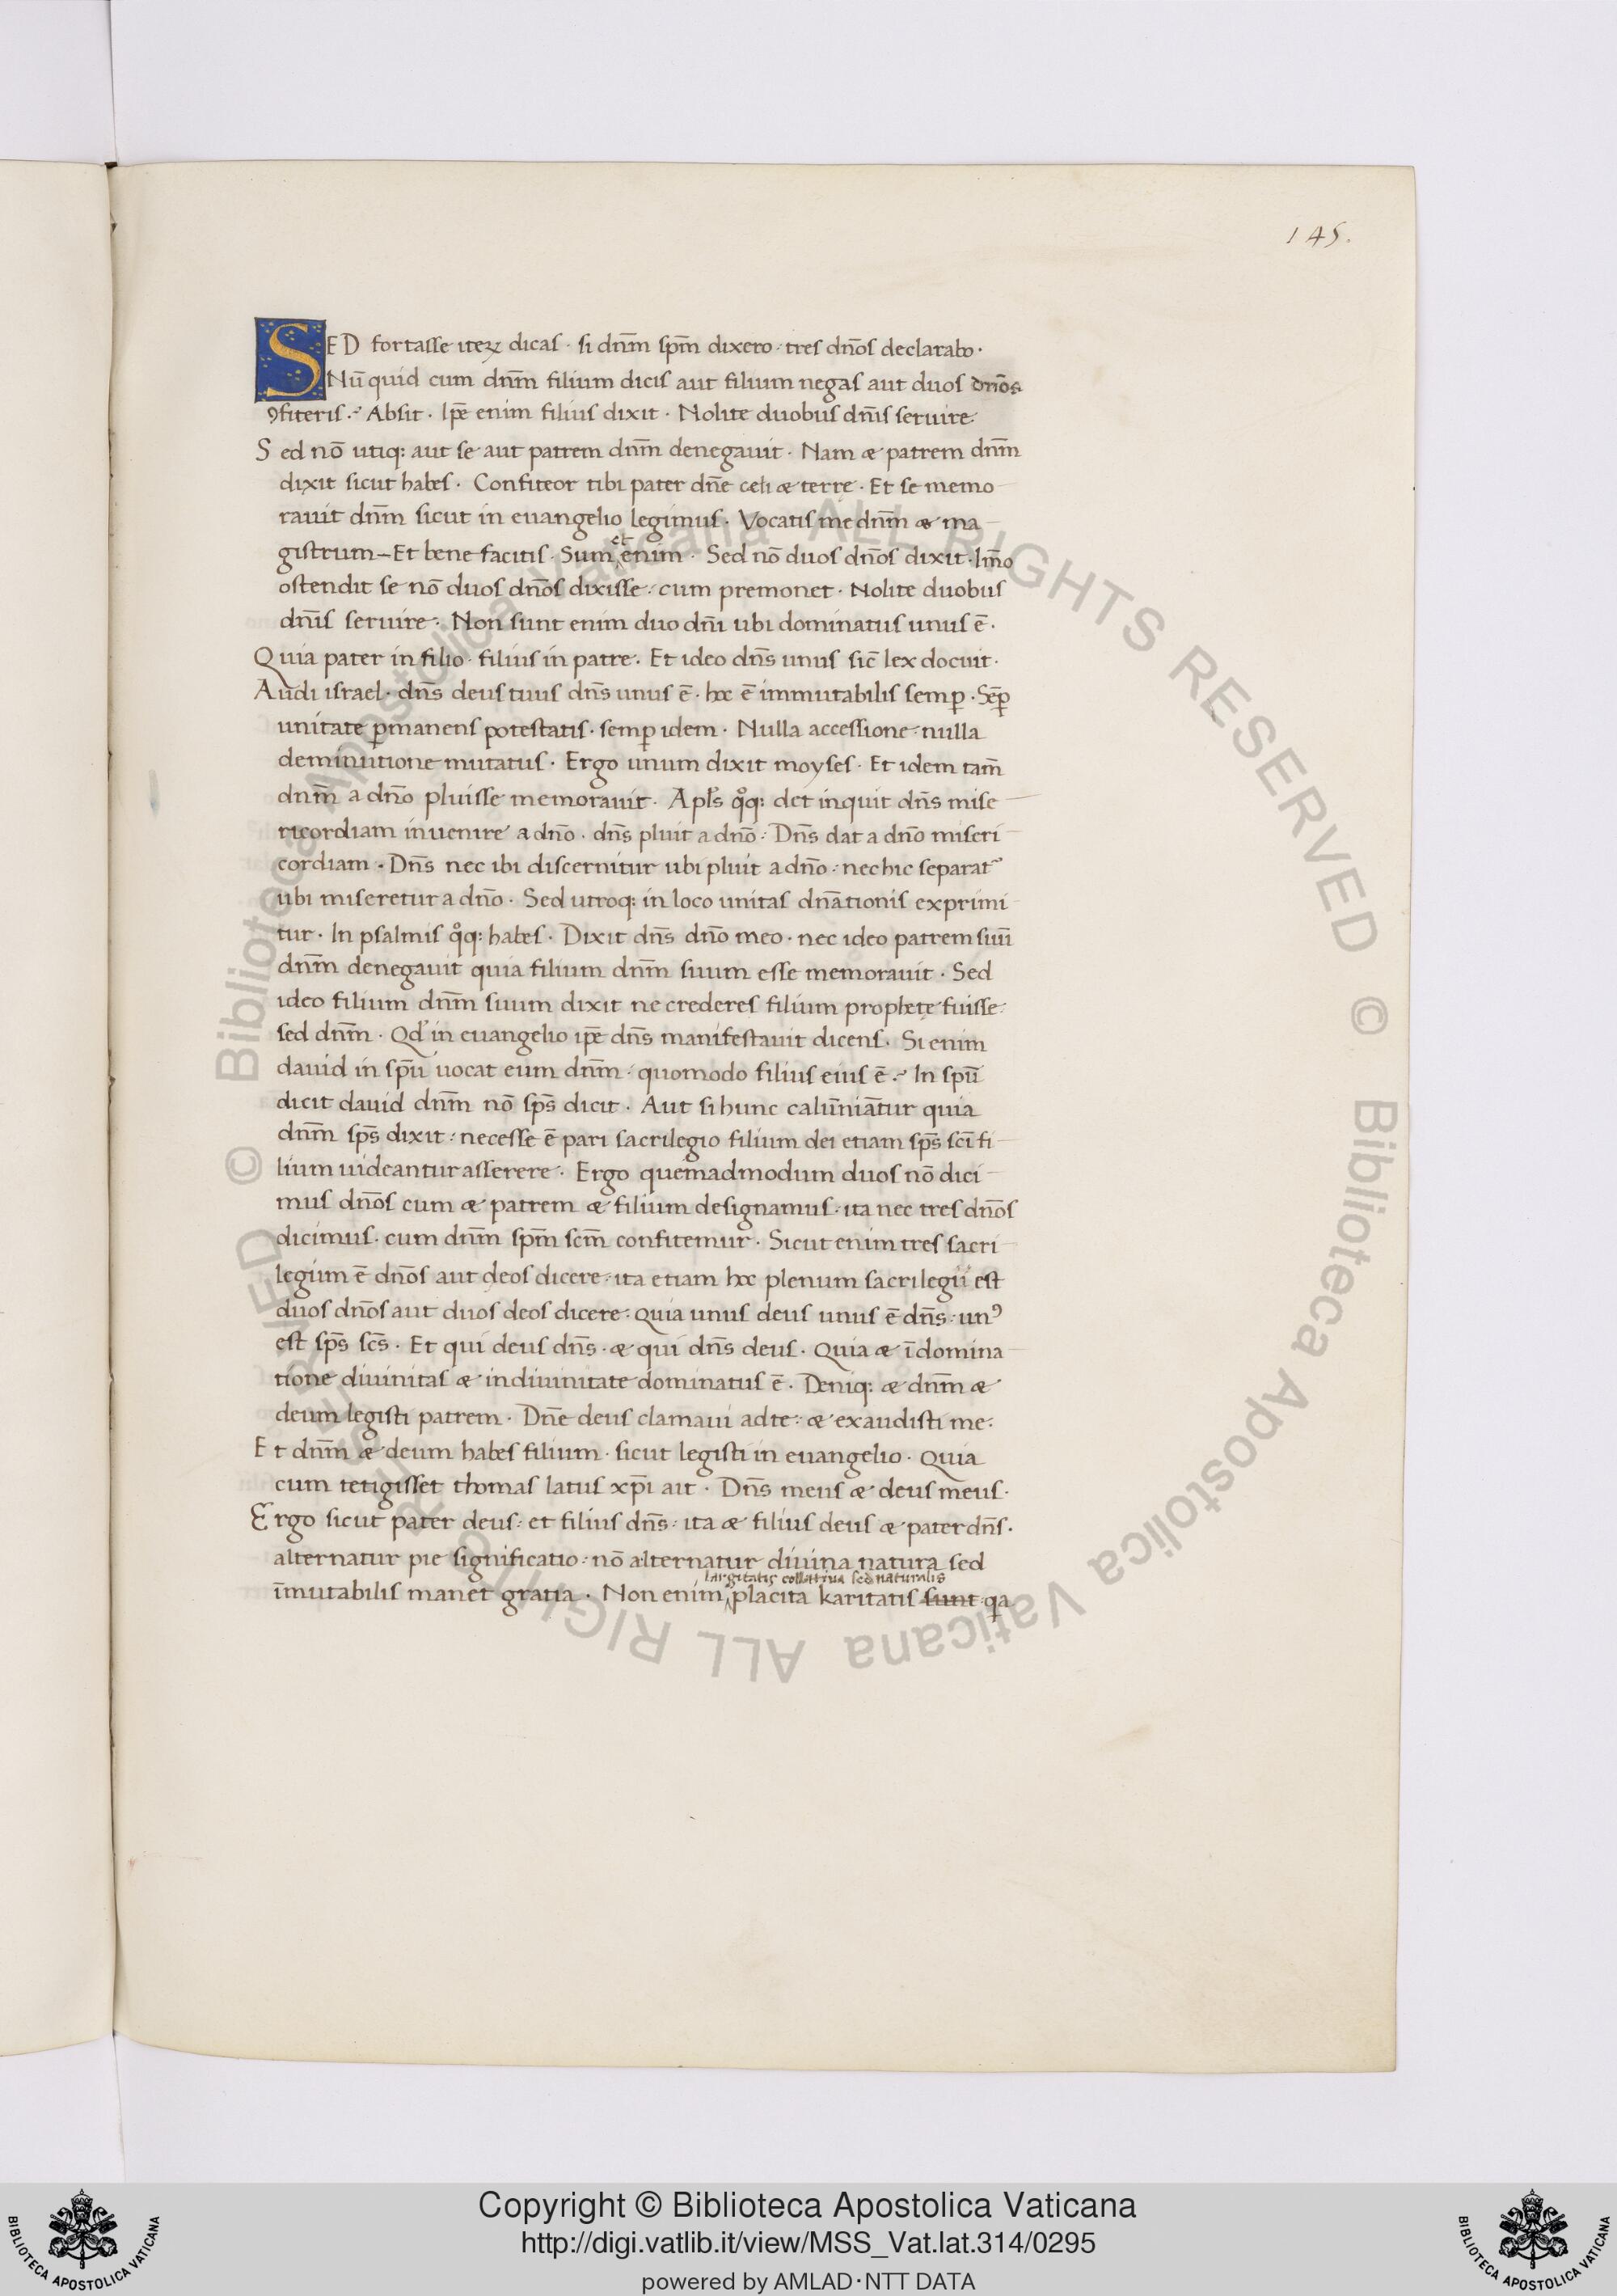 145.
SED fortasse iteꝝ dicas · si dn̄m sp̄m dixero · tres dn̄os declarabo ·
Nū quid cum dn̄m filium dicis aut filium negas aut duos dn̄os
ꝯfiteris ? Absit · Ip̄e enim filius dixit · Nolite duobus dn̄is servire
Sed nō utiq; aut se aut patrem dn̄m denegavit · Nam æ patrem dn̄m
dixit sicut habes · Confiteor tibi pater dn̄e celi æ terre · Et se memo
ravit dn̄m sicut in evangelio legimus · Vocatis me dn̄m æ ma
gistrum – Et bene facitis · Sum et enim · Sed nō duos dn̄os dixit · Im̄o
ostendit se nō duos dn̄os dixisse : cum premonet · Nolite duobus
dn̄is servire · Non sunt enim duo dn̄i ubi dominatus unus ē ·
Quia pater in filio · filius in patre · Et ideo dn̄s unus sic̄ lex docuit ·
Audi israel · dn̄s deus tuus dn̄s unus ē · hoc ē immutabilis semꝑ · Sēꝑ
unitate ꝑmanens potestatis · semꝑ idem · Nulla accessione · nulla
deminutione mutatus · Ergo unum dixit moyses · Et idem tam̄
dnm̄ a dn̄o pluisse memoravit · Apl̄s qͦq; det inquit dn̄s mise
ricordiam invenire a dn̄o · dn̄s pluit a dn̄o : Dn̄s dat a dn̄o miseri
cordiam · Dn̄s nec ibi discernitur ubi pluit a dn̄o : nec hic separat᷑
ubi miseretur a dn̄o · Sed utroq; in loco unitas dn̄ationis exprimi
tur · In psalmis qͦq; habes · Dixit dn̄s dn̄o meo · nec ideo patrem suū
dn̄m denegavit quia filium dn̄m suum esse memoravit · Sed
ideo filium dn̄m suum dixit ne crederes filium prophetę fuisse
sed dn̄m · Qd̓ in evangelio ip̄e dn̄s manifestavit dicens · Si enim
david in sp̄u vocat eum dn̄m · quomodo filius eius ē ? In sp̄u
dicit david dn̄m nō sp̄s dicit · Aut si hunc calūniātur quia
dn̄m sp̄s dixit : necesse ē pari sacrilegio filium dei etiam sp̄s sc̄i fi
lium videantur asserere · Ergo quemadmodum duos nō dici
mus dn̄os cum æ patrem æ filium designamus · ita nec tres dn̄os
dicimus · cum dn̄m sp̄m sc̄m confitemur · Sicut enim tres sacri
legium ē dn̄os aut deos dicere · ita etiam hoc plenum sacrilegiī est
duos dn̄os aut duos deos dicere : quia unus deus unus ē dn̄s : unꝰ
est sp̄s sc̄s · Et qui deus dn̄s · æ qui dn̄s deus · Quia æ ī domina
tione divinitas æ in divinitate dominatus ē · Deniq; æ dn̄m æ
deum legisti patrem · Dn̄e deus clamavi ad te : æ exaudisti me ·
Et dn̄m æ deum habes filium · sicut legisti in evangelio · Quia
cum tetigisset thomas latus xp̄i ait · Dn̄s meus æ deus meus ·
Ergo sicut pater deus : et filius dn̄s : ita æ filius deus æ pater dn̄s ·
alternatur pie significatio : nō alternatur divina natura sed
largitatis collativa sed naturalis
īmutabilis manet gratia · Non enim placita karitatis sunt : qa
Copyright © Biblioteca Apostolica Vaticana
http://digi.vatlib.it/view/MSS_Vat.lat.314/0295
powered by AMLAD·NTT DATA
BIBLIOTECA APOSTOLICA VATICANA
BIBLIOTECA APOSTOLICA VATICANA
© Biblioteca Apostolica Vaticana ALL RIGHTS RESERVED © Biblioteca Apostolica Vaticana ALL RIGHTS RESERVED